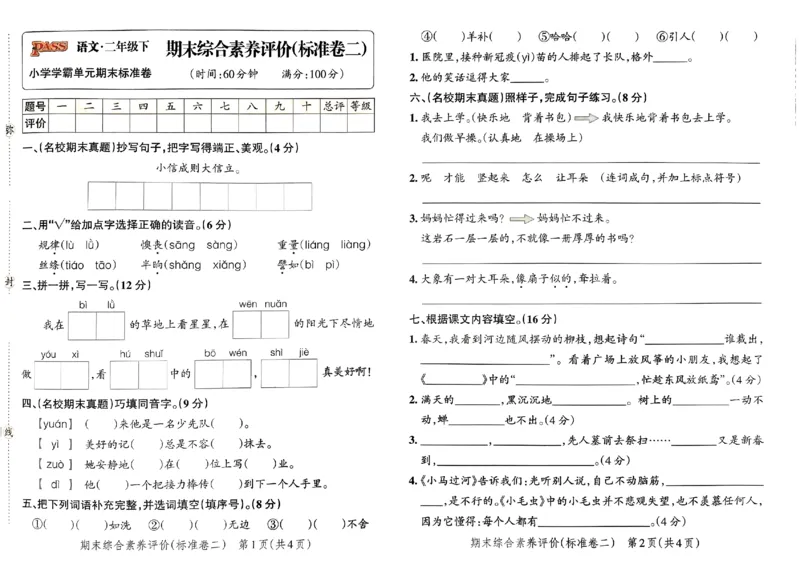 PASS 语文·二年级下 期末综合素养评价(标准卷二)
小学学霸单元期末标准卷 (时间:60分钟 满分:100分)
题号 一 二 三 四 五 六 七 八 九 十 总评 等级
评价
弥
封
线
一、(名校期末真题)抄写句子,把字写得端正、美观。(4分)
小信成则大信立。
二、用“√”给加点字选择正确的读音。(6分)
规律(lù lǜ) 懊丧(sāng sàng) 重量(liáng liàng)
丝绦(tiáo tāo) 半晌(shǎng xiǎng) 譬如(bì pì)
三、拼一拼,写一写。(12分)
bì lǜ wēn nuǎn
我在 的草地上看星星,在 的阳光下尽情地
yóu xì hú shuǐ bō wén shì jiè
做 ,看 中的 , 真美好啊!
四、(名校期末真题)巧填同音字。(9分)
【yuán】 ( )来他是一名少先队( )。
【 yì 】 美好的记( )总是不容( )抹去。
【 zuò 】 她安静地( )在( )位上写( )业。
【 dì 】 他( )一个把接力棒传( )到下一个人手里。
五、把下列词语补充完整,并选词填空(填序号)。(8分)
①( )( )如洗 ②( )( )无边 ③( )( )不舍
期末综合素养评价(标准卷二) 第1页(共4页)
④( )羊补( ) ⑤哈哈( )( ) ⑥引人( )( )
1. 医院里,接种新冠疫(yì)苗的人排起了长队,格外______。
2. 他的笑话逗得大家______。
六、(名校期末真题)照样子,完成句子练习。(8分)
1. 我去上学。(快乐地 背着书包) ⇒ 我快乐地背着书包去上学。
我们做早操。(认真地 在操场上)
2. 呢 才能 竖起来 怎么 让耳朵 (连词成句,并加上标点符号)
3. 妈妈忙得过来吗? ⇒ 妈妈忙不过来。
这岩石一层一层的,不就像一册厚厚的书吗?
4. 大象有一对大耳朵,像扇子似的,耷拉着。
七、根据课文内容填空。(16分)
1. 春天,我看到河边随风摆动的柳枝,想起诗句“____________谁裁出,
____________”。看着广场上放风筝的小朋友,我想起了
《________》中的“____________,忙趁东风放纸鸢”。(4分)
2. 满天的______,黑沉沉地__________。树上的________一动不
动,蝉______也不出。(4分)
3. __________,__________,先人墓前去祭扫……______又是新春
到,____________________。(4分)
4. 《小马过河》告诉我们:光听别人说,自己不动脑筋,____________
____,是不行的。《小毛虫》中的小毛虫并不悲观失望,也不羡慕任何人,
因为它懂得:每个人都有______________。(4分)
期末综合素养评价(标准卷二) 第2页(共4页)